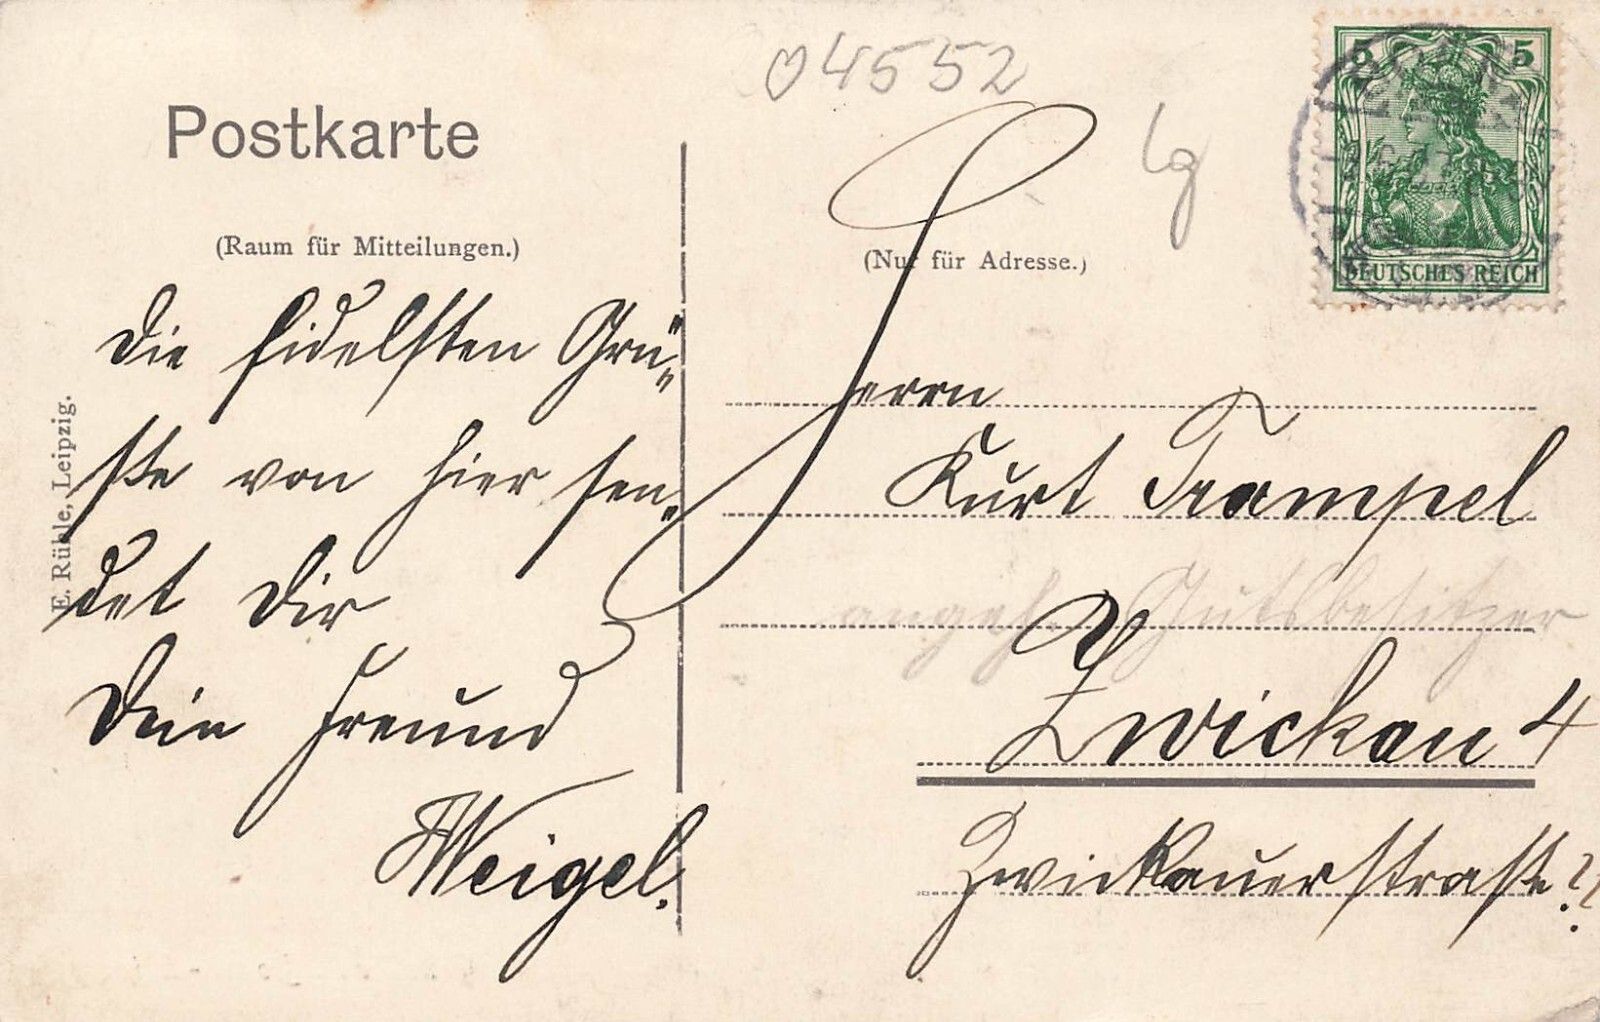 04552
Postkarte
lg
5 5
DEUTSCHES REICH
(Raum für Mitteilungen.)
(Nur für Adresse.)
Die fidelsten Grü-
ße von hier sen-
det Dir
Dein Freund
Weigel.
Herrn
Kurt Trampel
angeh. Gutsbesitzer
Zwickau 4
Zwickauerstraße ??
E. Rühle, Leipzig.